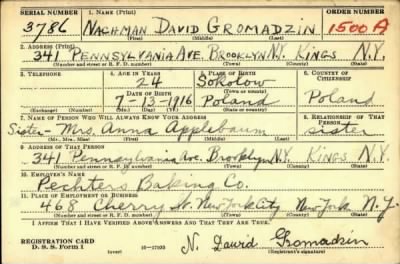 SERIAL NUMBER 1. NAME (Print) ORDER NUMBER
3786 NACHMAN DAVID GROMADZIN 1500 A
(First) (Middle) (Last)
2. ADDRESS (Print)
341 PENNSYLVANIA AVE. BROOKLYN N.Y. KINGS N.Y.
(Number and street or R. F. D. number) (Town) (County) (State)
3. TELEPHONE 4. AGE IN YEARS 5. PLACE OF BIRTH 6. COUNTRY OF CITIZENSHIP
24 Sokolow
(Town or county)
DATE OF BIRTH
7-13-1916 Poland Poland
(Exchange) (Number) (Mo.) (Day) (Yr.) (State or country)
7. NAME OF PERSON WHO WILL ALWAYS KNOW YOUR ADDRESS 8. RELATIONSHIP OF THAT PERSON
Sister - Mrs. Anna Applebaum sister
(Mr., Mrs., Miss) (First) (Middle) (Last)
9. ADDRESS OF THAT PERSON
341 Pennsylvania Ave. Brooklyn N.Y. Kings N.Y.
(Number and street or R. F. D. number) (Town) (County) (State)
10. EMPLOYER'S NAME
Pechters Baking Co.
11. PLACE OF EMPLOYMENT OR BUSINESS
468 Cherry St. New York City New York N.Y.
(Number and street or R. F. D. number) (Town) (County) (State)
I AFFIRM THAT I HAVE VERIFIED ABOVE ANSWERS AND THAT THEY ARE TRUE.
REGISTRATION CARD
D. S. S. Form 1 (over) N. David Gromadzin